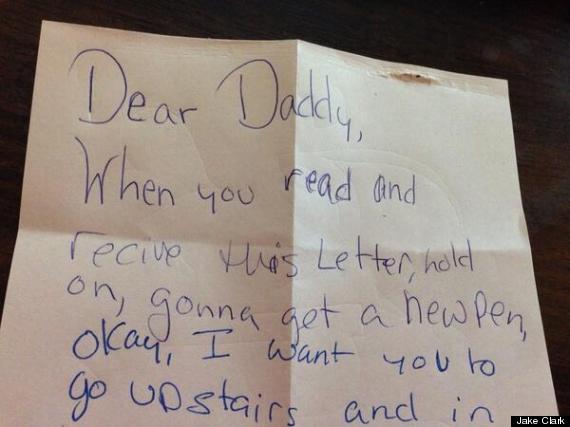 Dear Daddy,
When you read and
recive this Letter, hold
on, gonna get a new Pen,
Okay, I want you to
go upstairs and in
Jake Clark